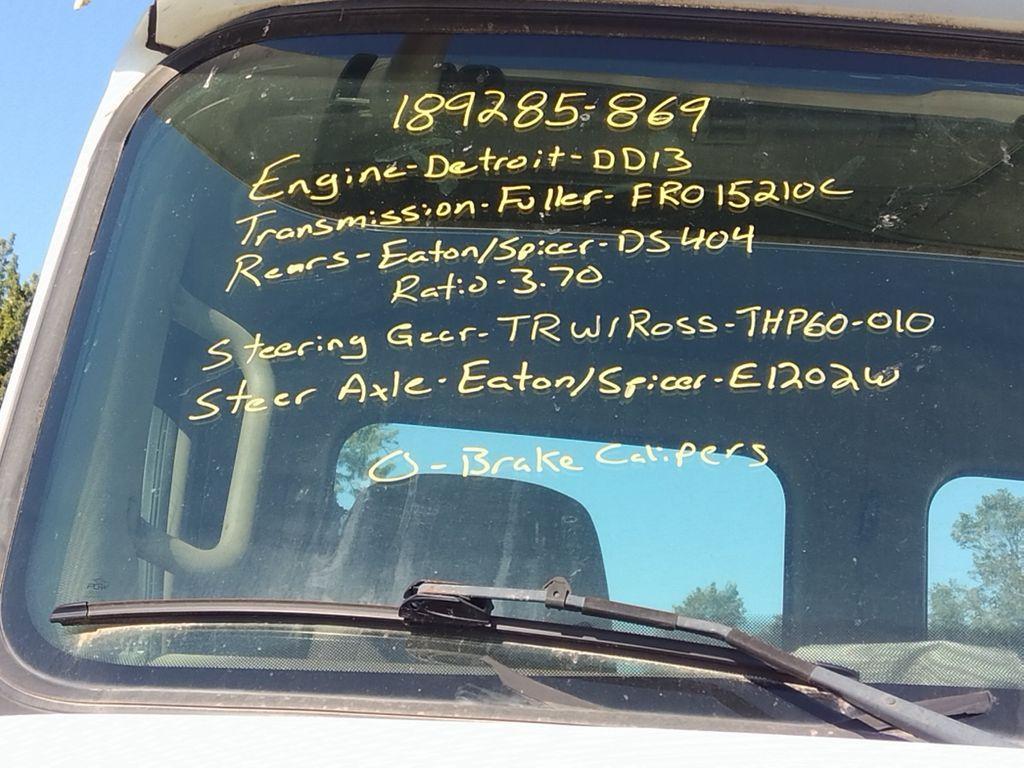 189285-869
Engine-Detroit-DD13
Transmission-Fuller-FRO15210C
Rears-Eaton/Spicer-DS404
Ratio-3.70
Steering Gear-TRW/Ross-THP60-010
Steer Axle-Eaton/Spicer-E1202W
0-Brake Calipers